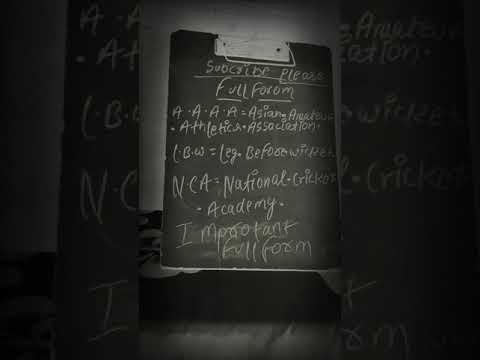 Subcribe Please
Full Forom
A.A.A.A = Asian.Amateur
. Athletics.Association.
L.B.W = Leg.Before wicket
N.C.A = National.Cricket
. Academy.
Improtant
Full Form